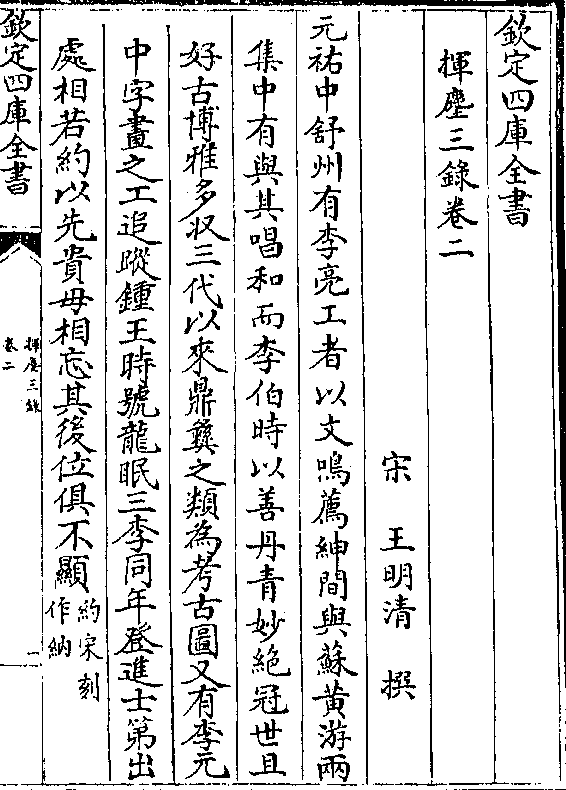 欽定四庫全書
揮麈三錄卷二
宋 王明清 撰
元祐中舒州有李亮工者以文鳴薦紳間與蘇黄游兩
集中有與其唱和而李伯時以善丹青妙絕冠世且
好古博雅多収三代以來鼎彝之類為考古圖又有李元
中字畫之工追蹤鍾王時號龍眠三李同年登進士第出
處相若約以先貴毋相忘其後位俱不顯約宋刻作納
欽定四庫全書
揮麈三錄
卷二
一